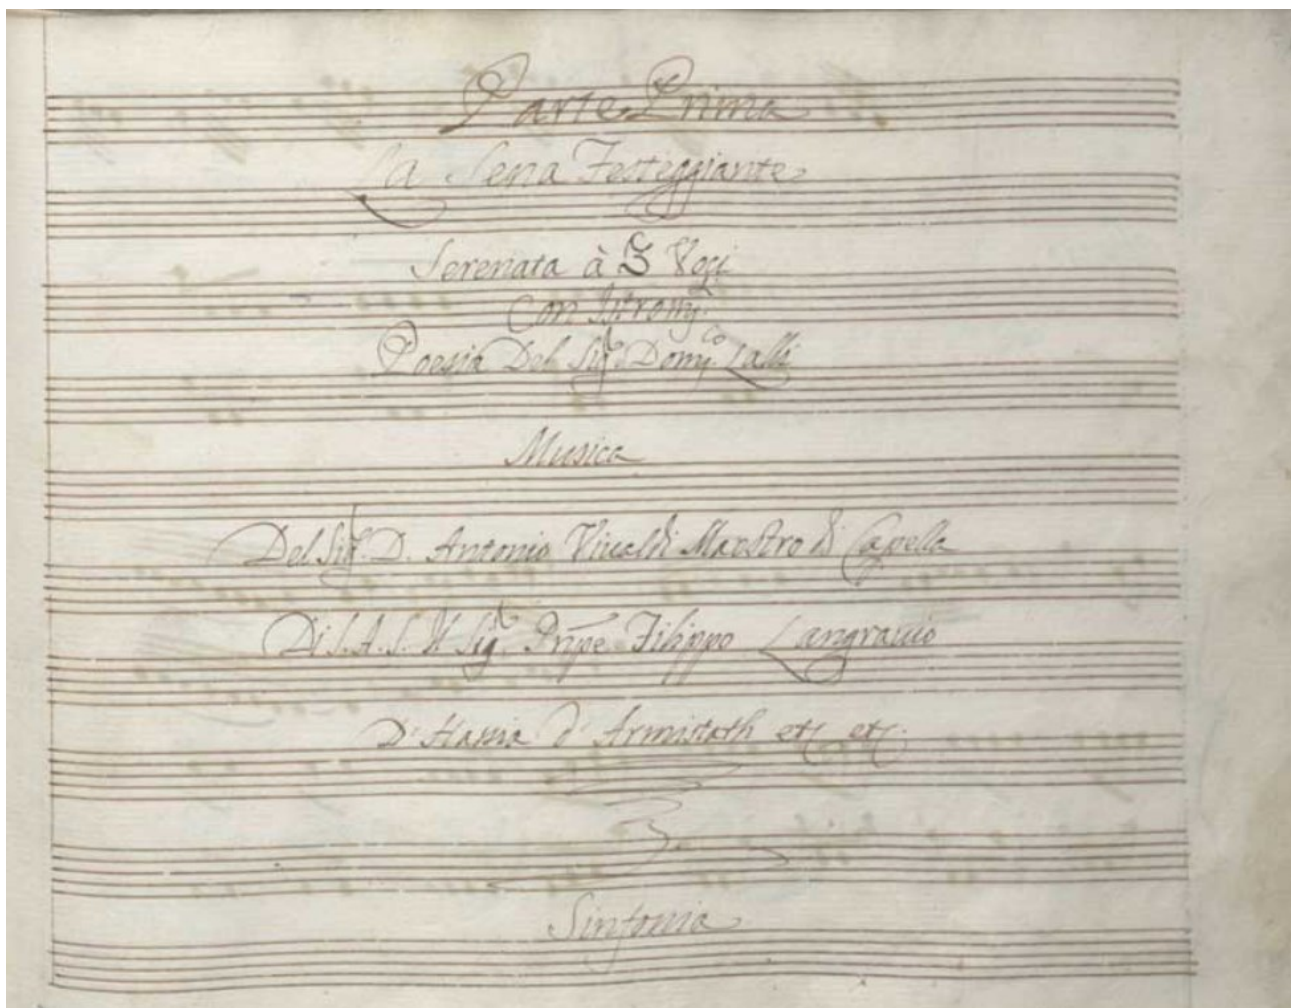 Parte Prima
La Sena Festeggiante
Serenata à 3 Voci
Con Istromti.
Poesia Del Sigr. Domco. Lalli
Musica
Del Sigr. D. Antonio Viualdi Maestro di Capella
Di S. A. S. Il Sigr. Prnpe Filippo Langrauio
D' Hassia d' Armistath etc etc.
Sinfonia